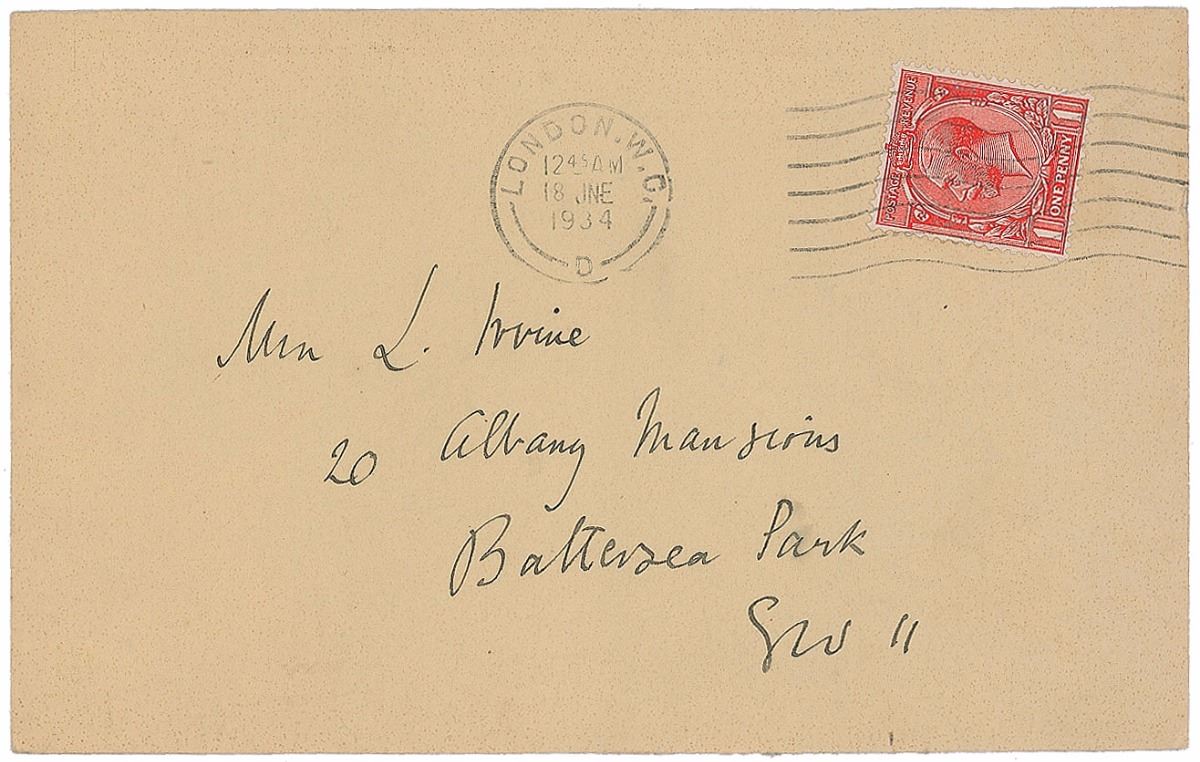 LONDON. W.C.
12 45 AM
18 JNE
1934
D
POSTAGE REVENUE
ONE PENNY
1 1
L. Irvine
20 Albany Mansions
Battersea Park
SW 11